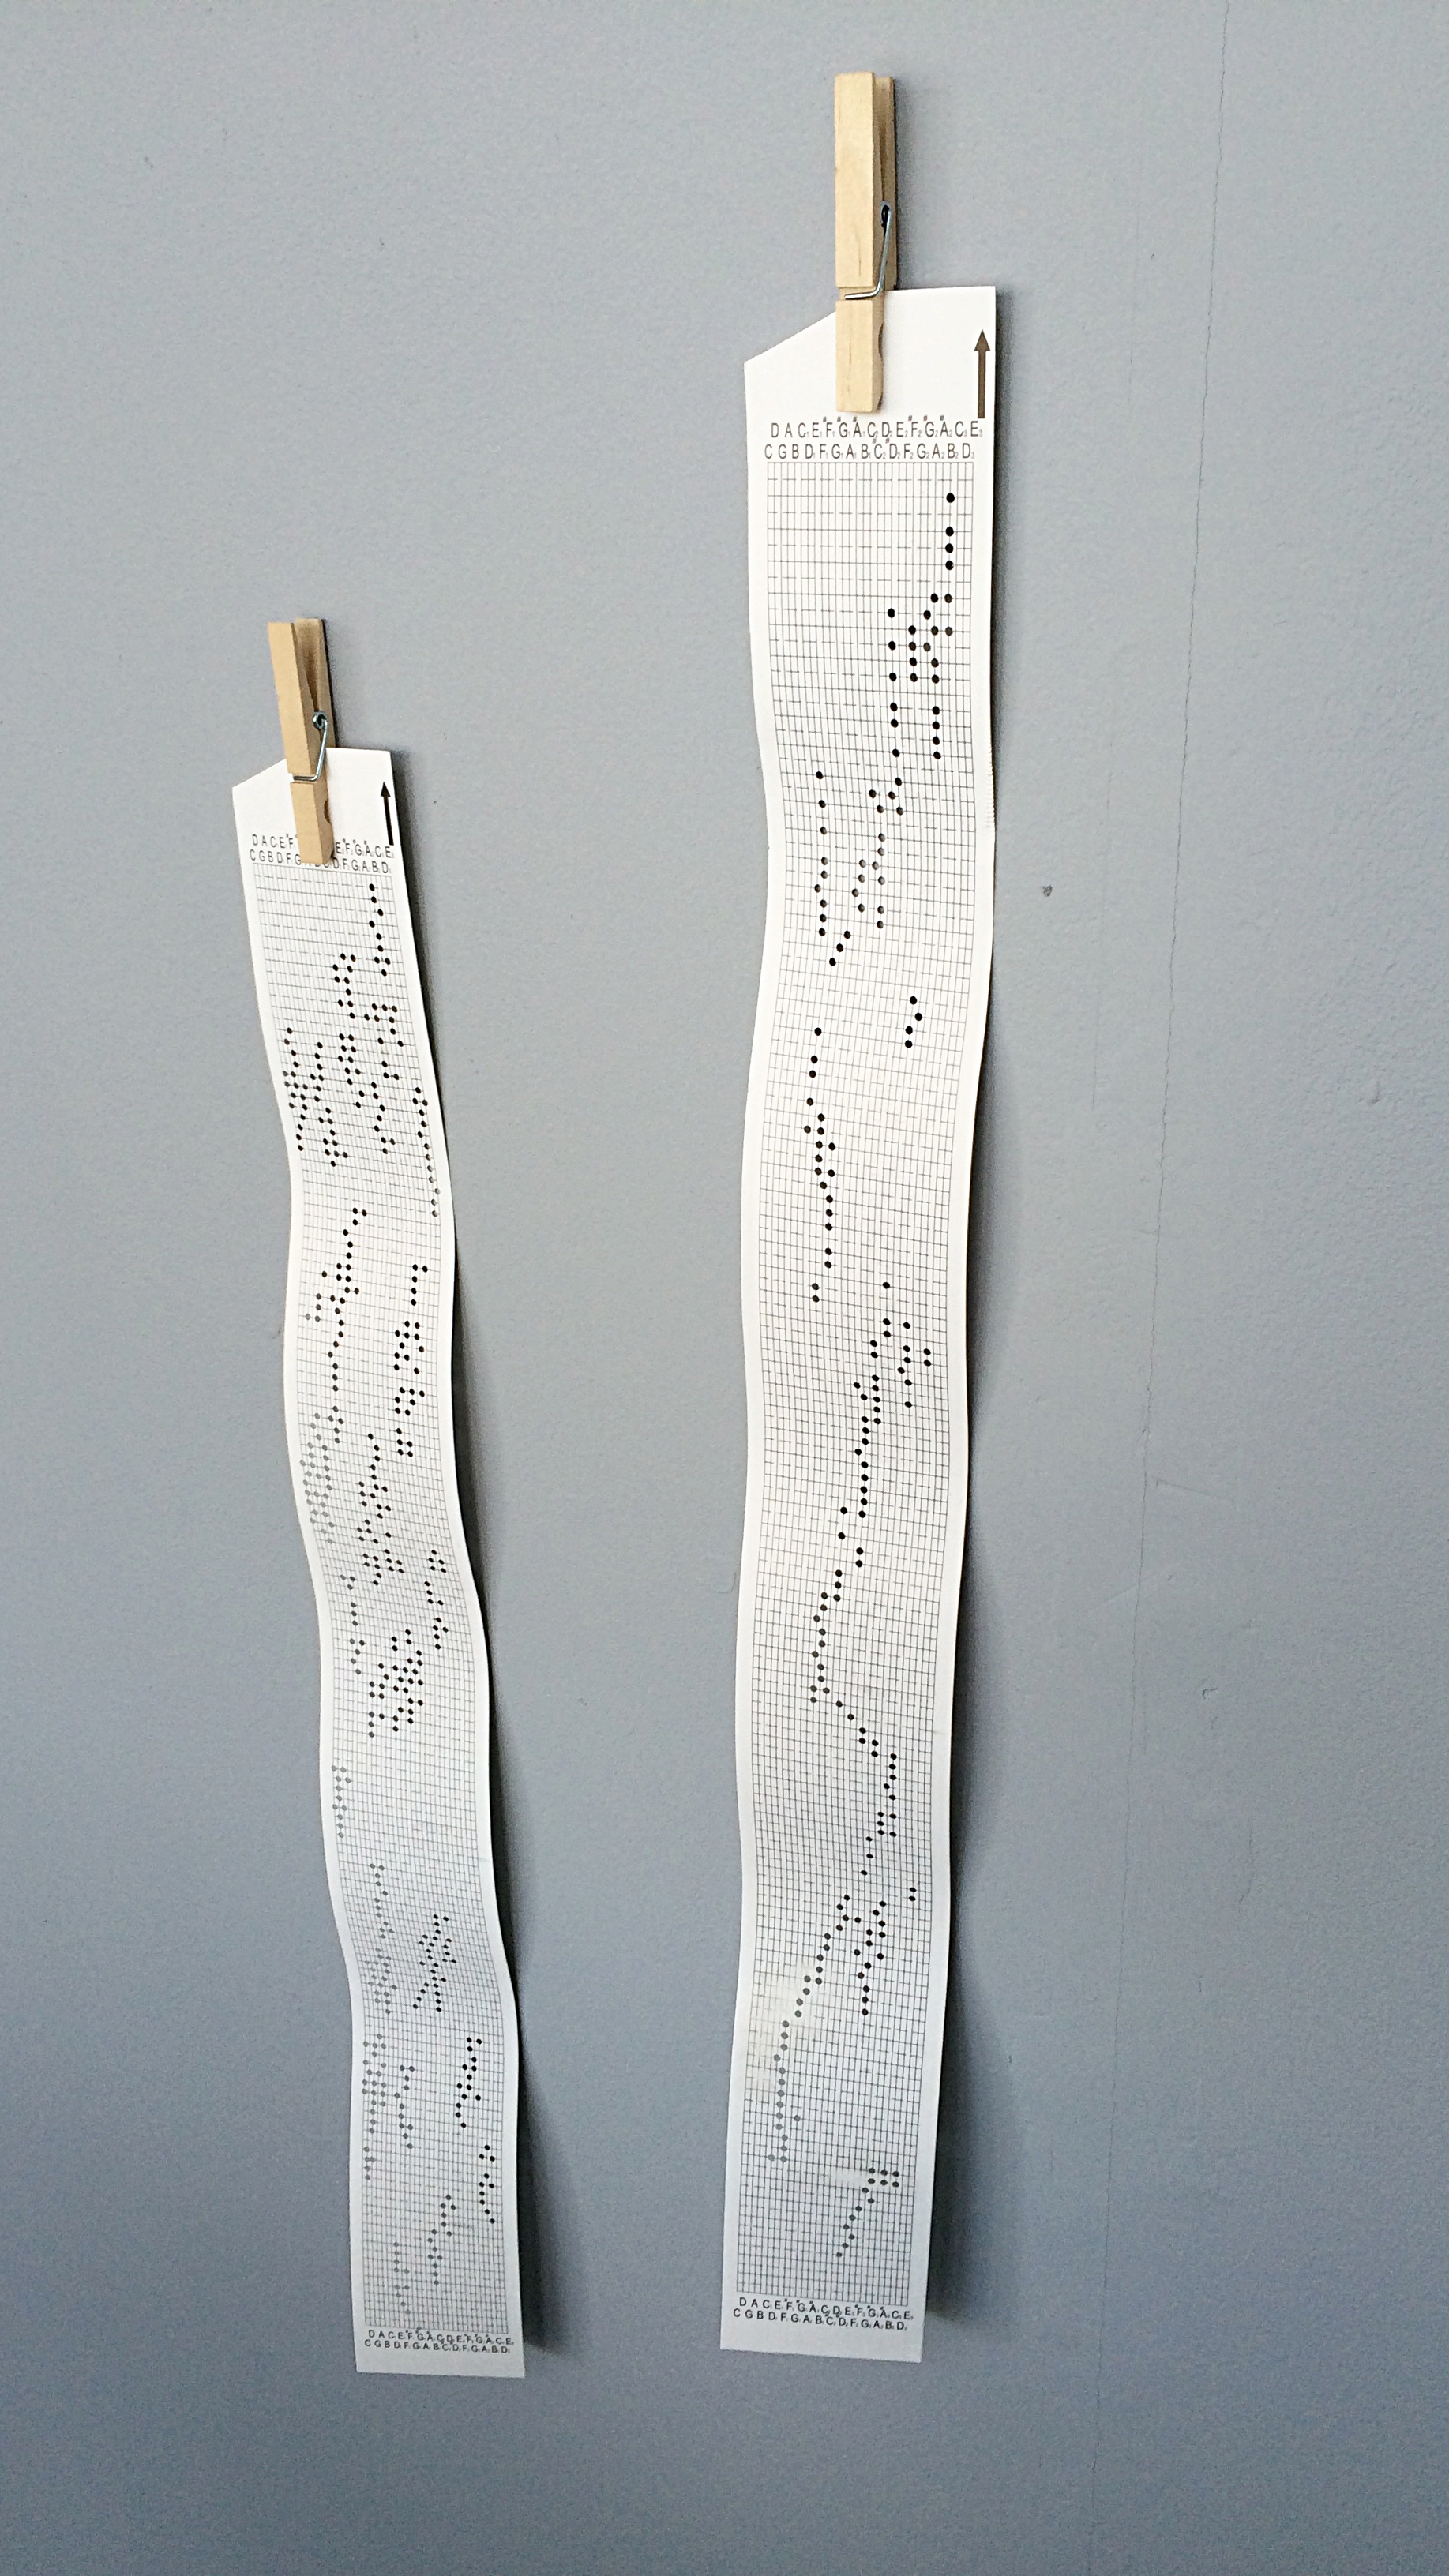 D A C E F E F G A C E
C G B D F G D F G A B D
D A C E F G A C D E F G A C E
C G B D F G A B C D F G A B D
D A C E F G A C D E F G A C E
C G B D F G A B C D F G A B D
D A C E F G A C D E F G A C E
C G B D F G A B C D F G A B D